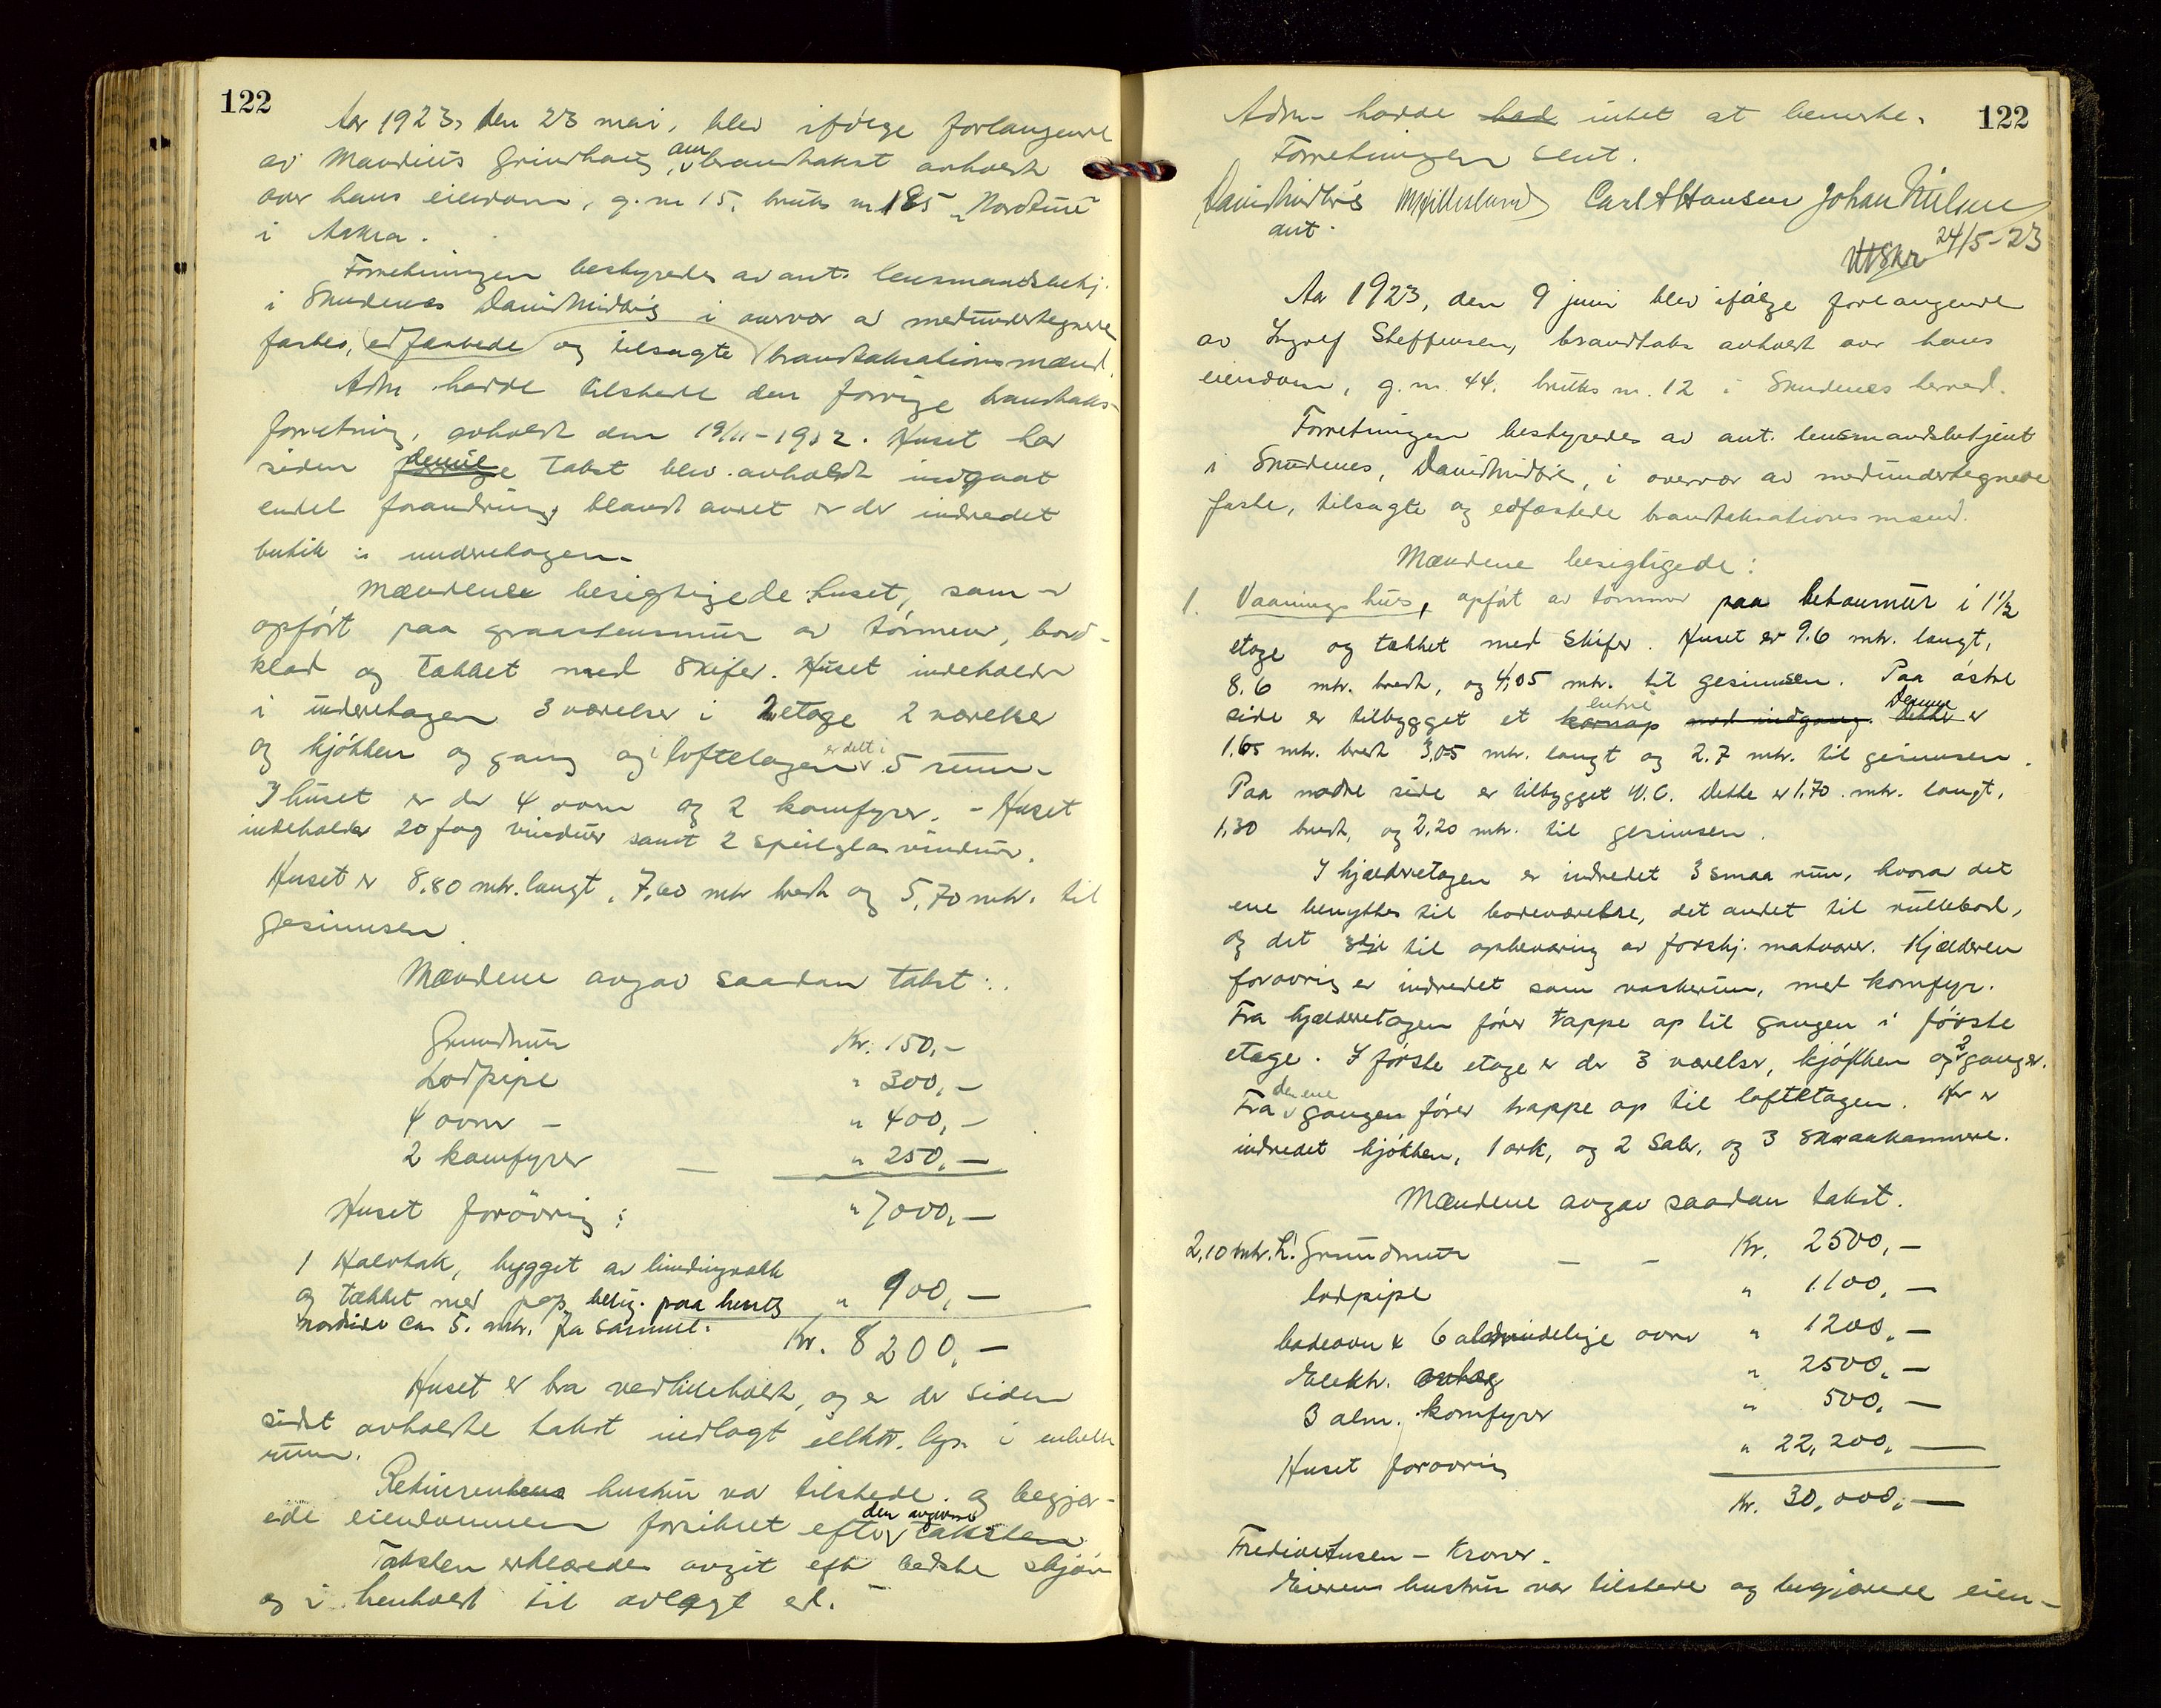 122
Aar 1923, den 23 mai, blev ifølge forlangende
av Maudius Grindhaug, om brandtakst avholdt
over hans eiendom, g.nr 15, bruks nr 185 "Nordtun"
i Aakra.
Forretningen bestyredes av ant. lensmandsbetj.
i Skudenes David Midbøe i overvær av medundertegnede
fastes, edfæstede og tilsagte brandtaksationsmænd.
Adm. hadde tilstede den forrige brandtaks-
forretning, avholdt den 19/11-1912. Huset har
siden denne takst blev avholdt undgaat
endel forandring, blandt annet er der indredet
butik i underetagen.
Mændene besigtigede huset, som er
opført paa graastensmur av tømmer, bord-
klæd og tækket med skifer. Huset indeholder
i underetagen 3 værelser i 2 etage 2 værelser
og kjøkken og gang og i loftetagen er delt i 5 rum.
I huset er der 4 ovne og 2 komfyrer. - Huset
indeholder 20 fag vinduer samt 2 speilglasvinduer.
Huset er 8,80 mtr. langt, 7,60 mtr bredt og 5,70 mtr. til
gesimsen.
Mændene avgav saadan takst:
Grundmur Kr. 150,-
Lodpipe " 300,-
4 ovne - " 400,-
2 komfyrer - " 250,-
Huset forøvrig: " 7000,-
1 Halvtak, bygget av bindingsverk
og tækket med pap, belig. paa husets " 900,-
nordside ca 5. mtr. fra samme. Kr. 8200,-
Huset er bra vedlikeholdt, og er der siden
sidst avholdte takst indlagt elektr. lys i enkelte
rum.
Rekvirentens hustru var tilstede og begjær-
ede eiendommen forsikret efter den avgivne taksten
Taksten erklæredes avgit efter bedste skjøn
og i henhold til avlagt ed.
Adm. hadde had intet at bemerke.
122
Forretningen slut.
David Midbøe M Hillesland Carl A Hansen Johan Nilsen
ant.
Utskr 24/5-23
Aar 1923, den 9 juni blev ifølge forlangende
av Ingolf Steffensen, brandtakst avholdt over hans
eiendom, g.nr. 44. bruks nr. 12 i Skudenes herred.
Forretningen bestyredes av ant. lensmandsbetjent
i Skudenes, David Midbøe, i overvær av medundertegnede
faste, tilsagte og edfæstede brandtaksationsmænd.
Mændene besigtigede:
1. Vaaningshus, opført av tømmer paa betonmur i 1 1/2
etage og tækket med skifer. Huset er 9.6 mtr. langt,
8.6 mtr. bredt, og 4,05 mtr. til gesimsen. Paa østre
side er tilbygget et karnap entré med indgang. Dette Denne er
1.65 mtr. bredt 3,05 mtr. langt og 2.7 mtr. til gesimsen.
Paa nordre side er tilbygget W.C. Dette er 1.70 mtr. langt,
1,30 bredt, og 2,20 mtr. til gesimsen.
I kjælderetagen er indredet 3 smaa rum, hvorav det
ene benyttes til badeværelse, det andet til rullebod,
og det 3dje til opbevaring av forskj. matvarer. Kjælderen
forøvrig er indredet som vaskerum, med komfyr.
Fra kjælderetagen fører trappe op til gangen i første
etage. I første etage er der 3 værelser, kjøkken og 2 ganger.
Fra den ene gangen fører trappe op til loftetagen. Her er
indredet kjøkken, 1 ark, og 2 Saler, og 3 skraakammere.
Mændene avgav saadan takst.
2,10 mtr. h. Grundmur - - Kr. 2500,-
lodpipe " 1100,-
badeovn & 6 almindelige ovne " 1200,-
Elektr. anlæg " 2500,-
3 alm. komfyrer " 500,-
Huset forøvrig " 22,200,-
Kr. 30,000,-
Tredivetusen - Kroner.
Eierens hustru var tilstede og begjærede eien-